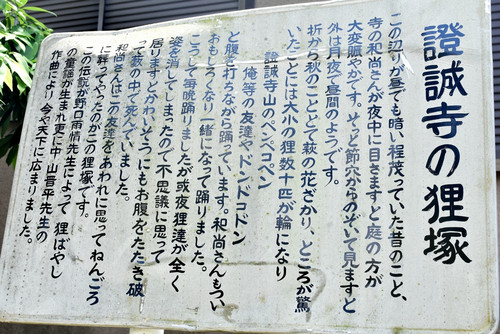 證誠寺の狸塚
この辺りが昼でも暗い程茂っていた昔のこと、
寺の和尚さんが夜中に目さますと庭の方が
大変賑やかです。そっと節穴からのぞいて見ますと
外は月夜で昼間のようです。
折から秋のこととて萩の花ざかり、ところが驚
いたことには大小の狸数十匹が輪になり
證誠寺山のペンペコペン
俺等の友達やドンドコドン
と腹を打ちながら踊っています。和尚さんもつい
おもしろくなり一緒になって踊りました。
こうして毎晩踊りましたが或夜狸達が全く
姿を消してしまったので不思議に思って
居りますとかわいそうにもお腹をたたき破
って萩の中で死んでいました。
和尚さんはこの友達をあわれに思ってねんごろ
に葬ってやったのがこの狸塚です。
この伝説が野口雨情先生によって狸ばやし
の童謡が生まれ更に中山晋平先生の
作曲により今や天下に広まりました。